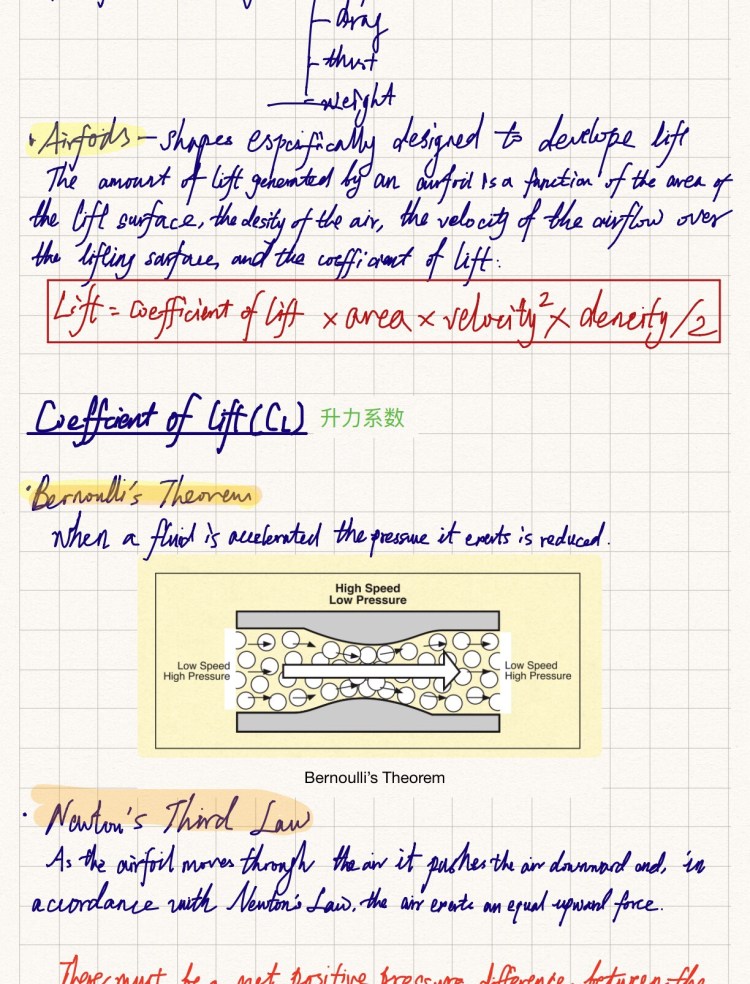 drag
thrust
weight
· Airfoils — shapes especifically designed to develope lift
The amount of lift generated by an airfoil is a function of the area of
the lift surface, the desity of the air, the velocity of the airflow over
the lifling sarface, and the coefficient of lift:
Lift = coefficient of lift × area × velocity² × dencity / 2
Coeffcient of lift (CL) 升力系数
· Bernoulli's Theorem
When a fluid is accelerated the pressure it exerts is reduced.
High Speed
Low Pressure
Low Speed
High Pressure
Low Speed
High Pressure
Bernoulli's Theorem
· Newton's Third Law
As the airfoil moves through the air it pushes the air downward and, in
accordance with Newton's Law, the air exerts an equal upward force.
There must be a net positive pressure difference between the